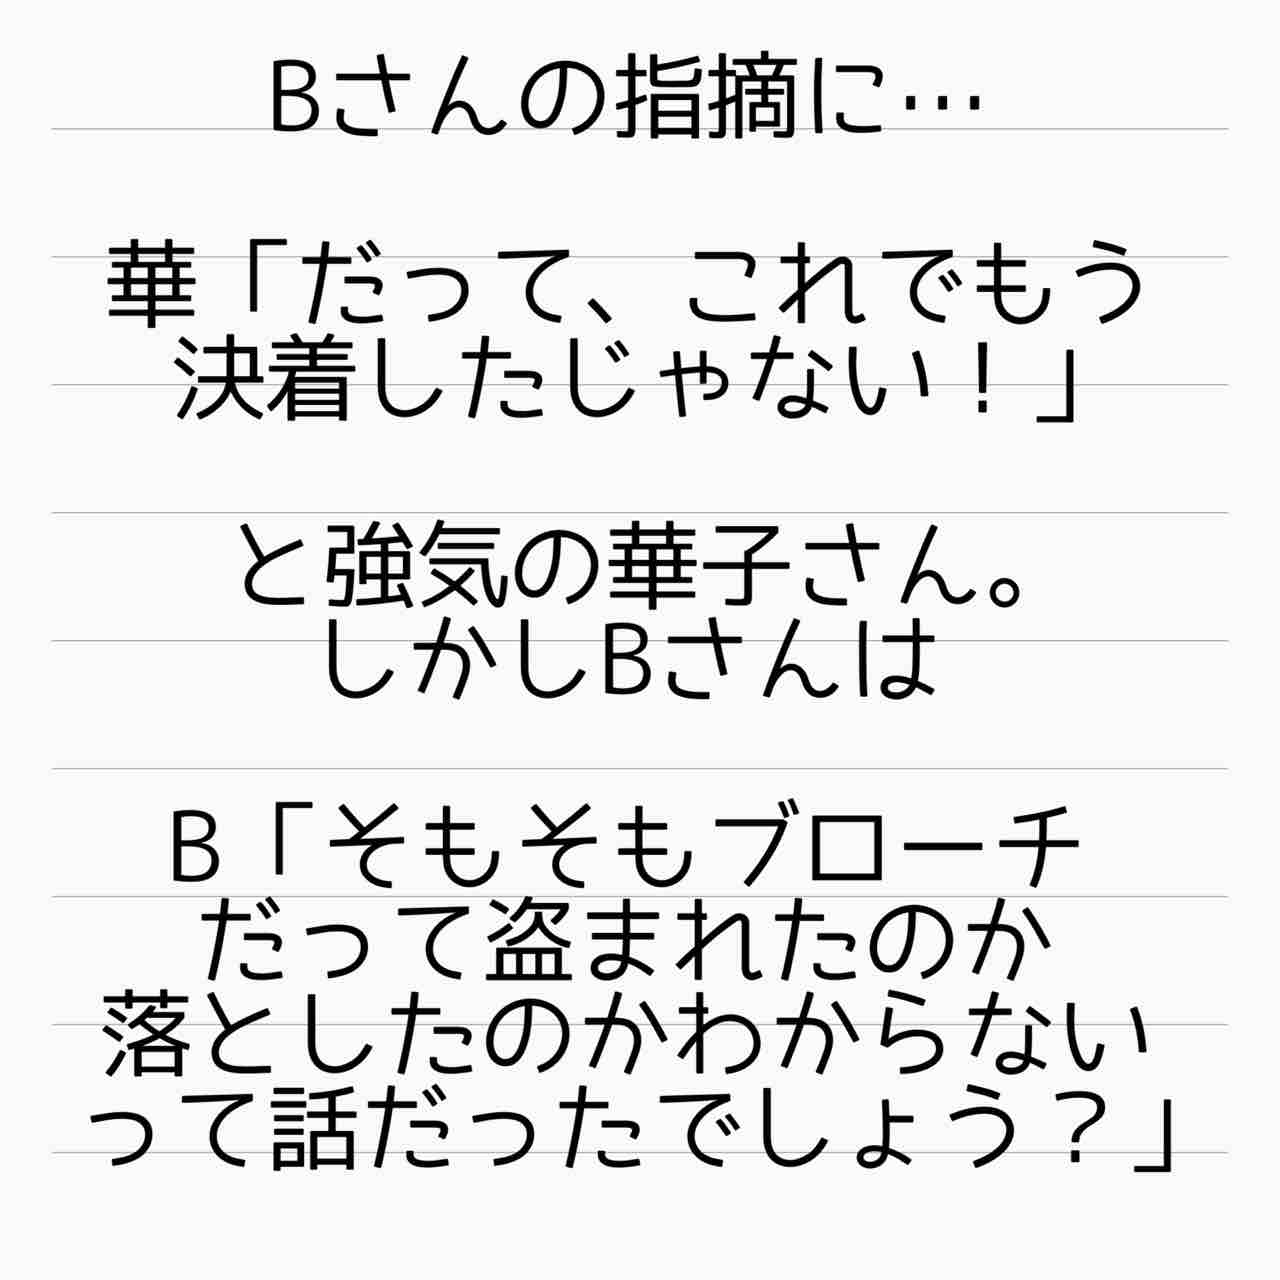 Bさんの指摘に…
華「だって、これでもう
決着したじゃない！」
と強気の華子さん。
しかしBさんは
B「そもそもブローチ
だって盗まれたのか
落としたのかわからない
って話だったでしょう？」